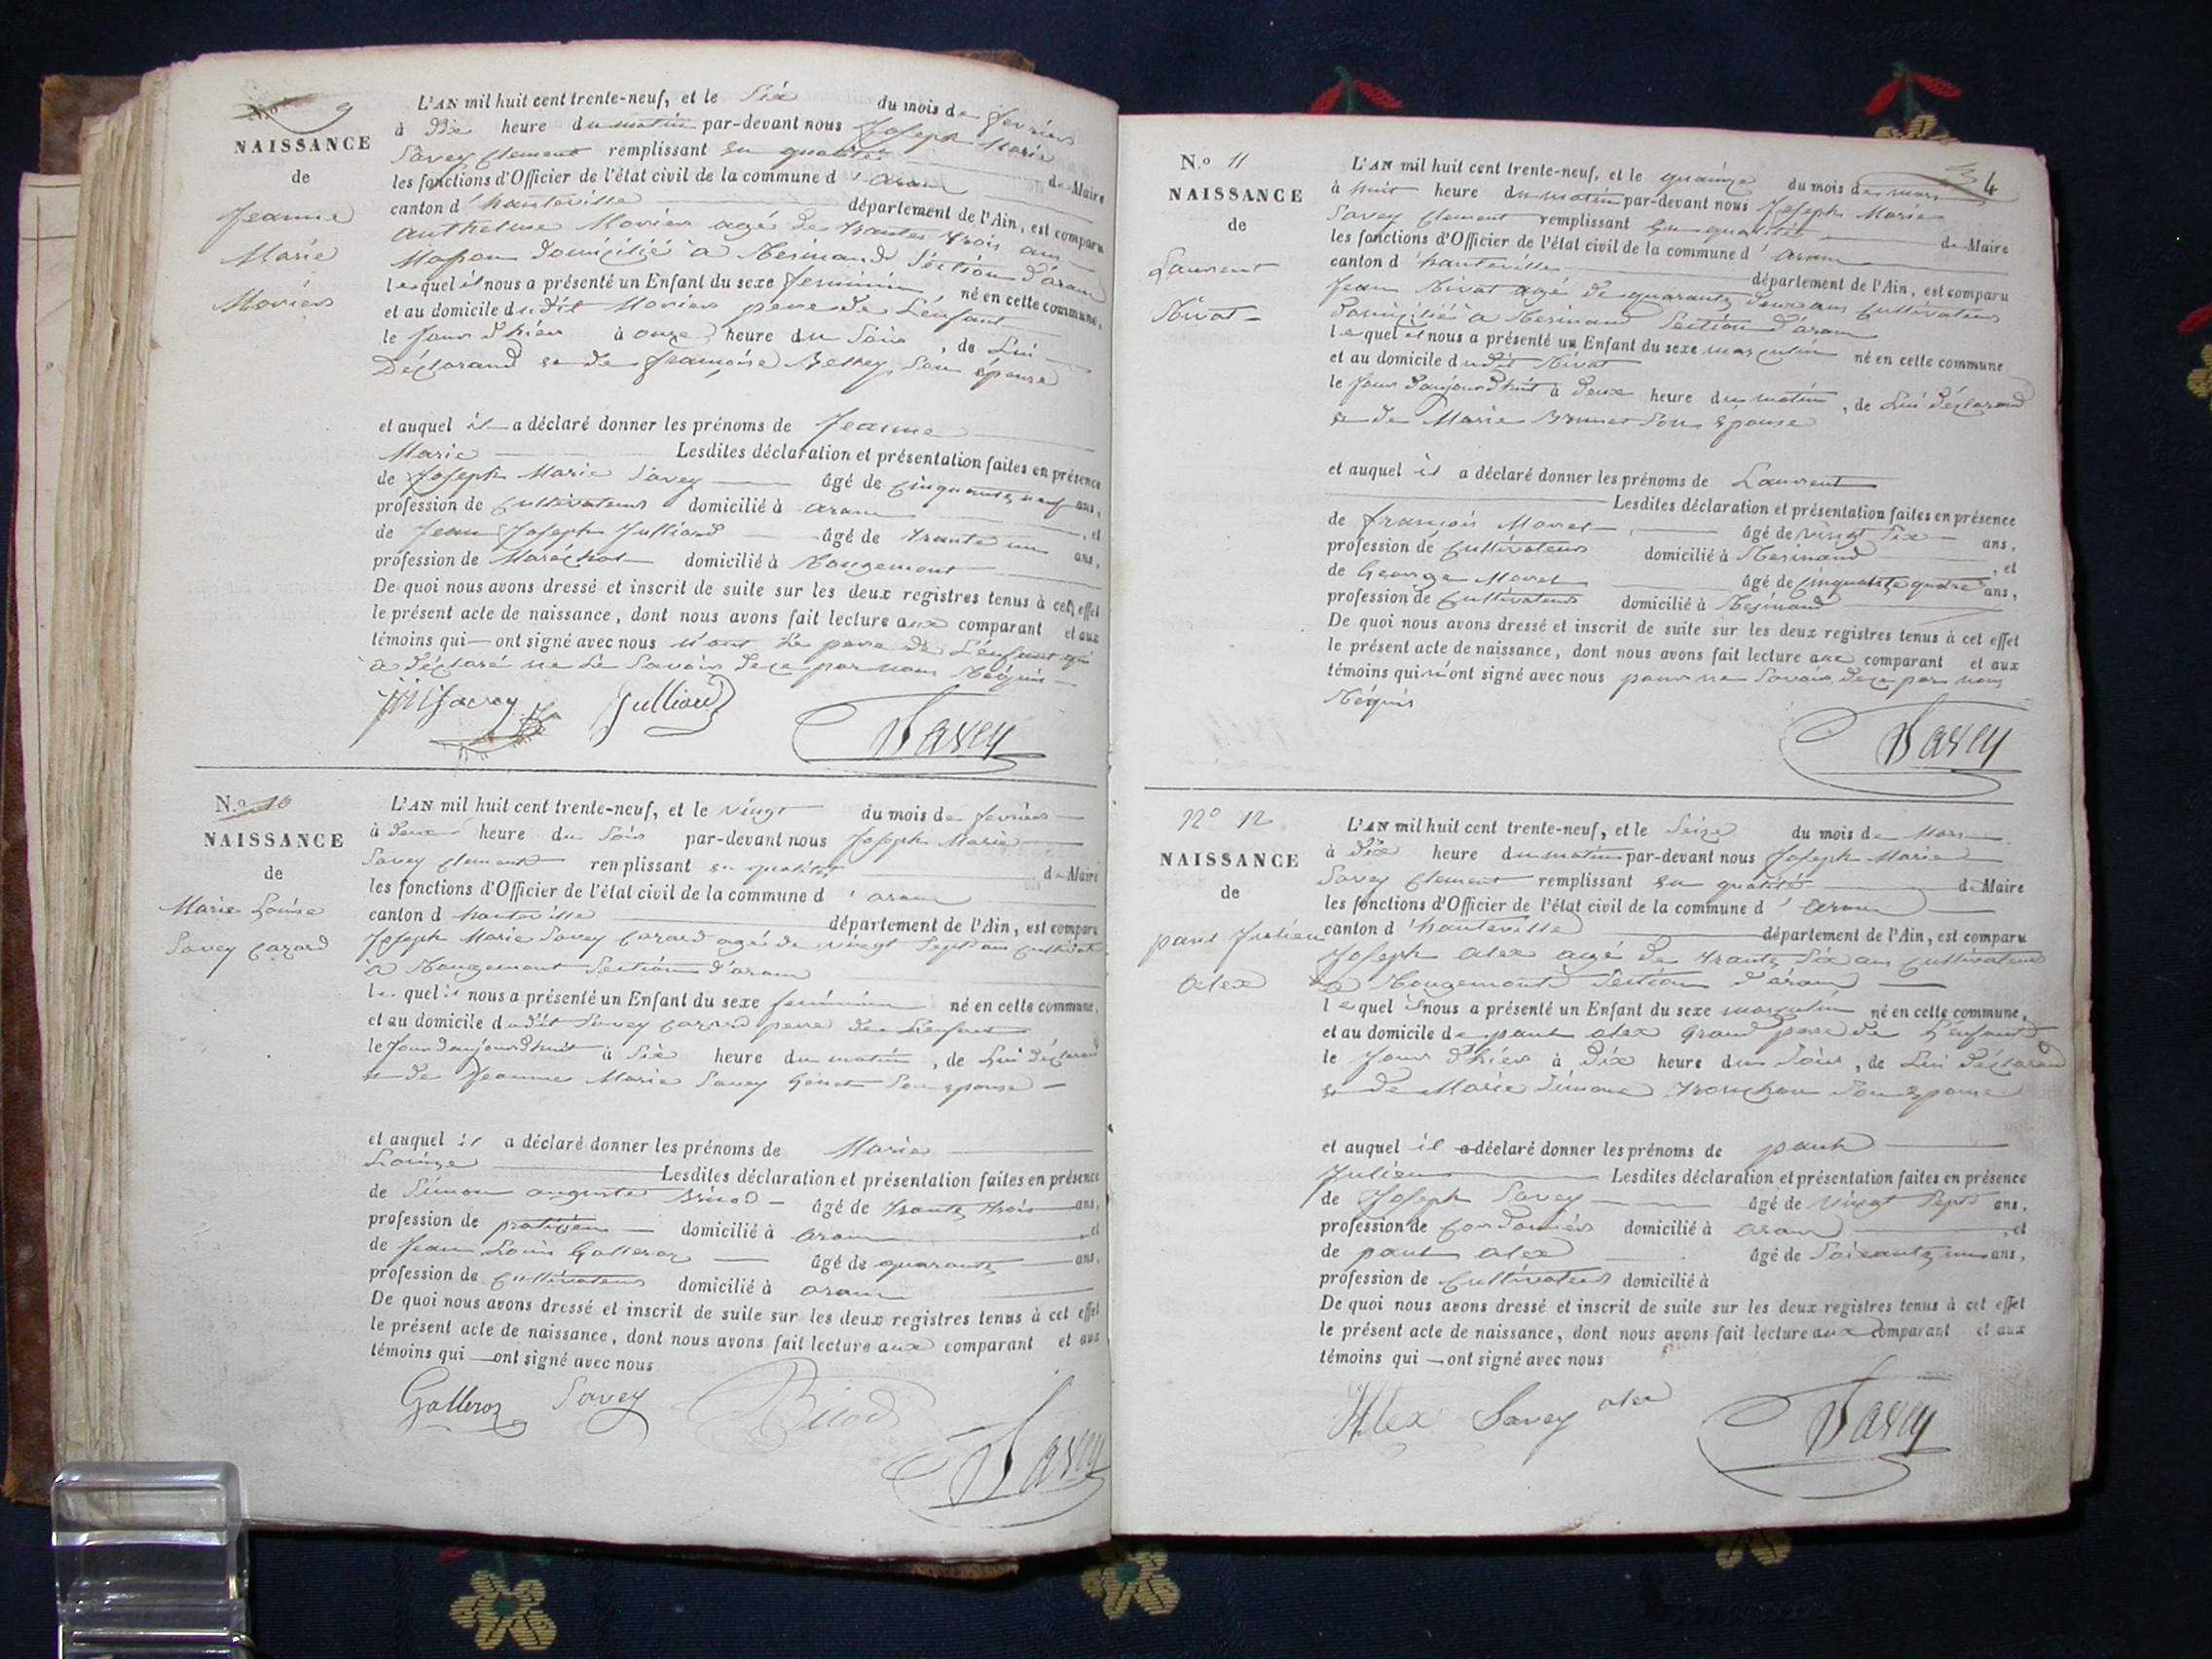 N.o 9
NAISSANCE
de
Jeanne
Marie
Moriers
L'AN mil huit cent trente-neuf, et le Six du mois de fevriers
à Dix heure du matin par-devant nous Joseph Marie
Savey Clement remplissant en qualité de Maire
les fonctions d'Officier de l'état civil de la commune d'aram
canton d'hauteville département de l'Ain, est comparu
Anthelme Moriers agé de trante trois ans
Masson domicilié à Resinand Séction d'aram
lequel il nous a présenté un Enfant du sexe feminin né en cette commune,
et au domicile dudit Moriers pere de L'enfant
le Jour d'hiers à onze heure du Soir, de Lui
Déclarand et de françoise Son épouse
et auquel il a déclaré donner les prénoms de Jeanne
Marie Lesdites déclaration et présentation faites en présence
de Joseph Marie Savey âgé de Cinquante neuf ans,
profession de Cultivateurs domicilié à aram , et
de Jean Joseph Julliard âgé de trante un ans,
profession de Maréchal domicilié à Rougemont
De quoi nous avons dressé et inscrit de suite sur les deux registres tenus à cet effet
le présent acte de naissance, dont nous avons fait lecture aux comparant et aux
témoins qui ont signé avec nous non Le pere de L'enfant qui
a déclaré ne Le Savoir dece par nous Réquis
JM Savey Julliard Savey
N.o 10
NAISSANCE
de
Marie Louise
Savey Cazard
L'AN mil huit cent trente-neuf, et le vingt du mois de fevriers
à deux heure du Soir par-devant nous Joseph Marie
Savey Clement remplissant en qualité de Maire
les fonctions d'Officier de l'état civil de la commune d'aram
canton d'hauteville département de l'Ain, est comparu
Joseph Marie Savey Cazard agé de vingt Sept ans Cultivateur
à Rougemont Section d'aram
lequel il nous a présenté un Enfant du sexe feminin né en cette commune,
et au domicile dudit Savey Cazard pere de L'enfant
le Jour d'aujourdhuit à Six heure du matin, de Lui déclarand
et de Jeanne Marie Savey Son épouse
et auquel il a déclaré donner les prénoms de Marie
Louise Lesdites déclaration et présentation faites en présence
de Simon auguste Brisod âgé de trante trois ans,
profession de praticien domicilié à aram , et
de Jean Louis Galleroz âgé de quarante ans,
profession de Cultivateurs domicilié à aram
De quoi nous avons dressé et inscrit de suite sur les deux registres tenus à cet effet
le présent acte de naissance, dont nous avons fait lecture aux comparant et aux
témoins qui ont signé avec nous
Galleroz Savey
Savey
34
N.o 11
NAISSANCE
de
Laurent
Nivat
L'AN mil huit cent trente-neuf, et le quainze du mois de mars
à huit heure du matin par-devant nous Joseph Marie
Savey Clement remplissant en qualité de Maire
les fonctions d'Officier de l'état civil de la commune d'aram
canton d'hauteville département de l'Ain, est comparu
Jean Nivat agé de quarante deux ans Cultivateurs
domicilié à Resinand Section d'aram
lequel il nous a présenté un Enfant du sexe masculin né en cette commune
et au domicile dudit Nivat
le Jour d'aujourdhuit à deux heure du matin, de Lui déclarand
et de Marie Brunet Son épouse
et auquel il a déclaré donner les prénoms de Laurent
Lesdites déclaration et présentation faites en présence
de françois Morel âgé de vingt Six ans,
profession de Cultivateurs domicilié à Resinand , et
de George Morel âgé de Cinquante quatre ans,
profession de Cultivateurs domicilié à Resinand
De quoi nous avons dressé et inscrit de suite sur les deux registres tenus à cet effet
le présent acte de naissance, dont nous avons fait lecture aux comparant et aux
témoins qui n'ont signé avec nous pour ne Savoir dece par nous
Réquis
Savey
N.o 12
NAISSANCE
de
paul Julien
alex
L'AN mil huit cent trente-neuf, et le Seize du mois de Mars
à Dix heure du matin par-devant nous Joseph Marie
Savey Clement remplissant en qualité de Maire
les fonctions d'Officier de l'état civil de la commune d'aram
canton d'hauteville département de l'Ain, est comparu
Joseph alex agé de trante Six ans Cultivateurs
à Rougemont Section d'aram
lequel il nous a présenté un Enfant du sexe masculin né en cette commune,
et au domicile de paul alex Grand pere de L'enfant
le Jour d'hiers à Dix heure du Soir, de Lui déclarand
et de Marie Simone Tronchon Son épouse
et auquel il a déclaré donner les prénoms de paul
Julien Lesdites déclaration et présentation faites en présence
de Joseph Savey âgé de vingt Sept ans,
profession de Cordonniers domicilié à aram , et
de paul alex âgé de Soixante un ans,
profession de Cultivateurs domicilié à
De quoi nous avons dressé et inscrit de suite sur les deux registres tenus à cet effet
le présent acte de naissance, dont nous avons fait lecture aux comparant et aux
témoins qui ont signé avec nous
Alex Savey alex Savey